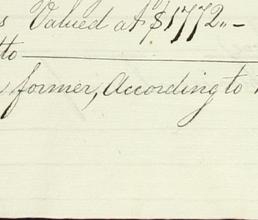 s Valued at $1772"-
tto
former, According to